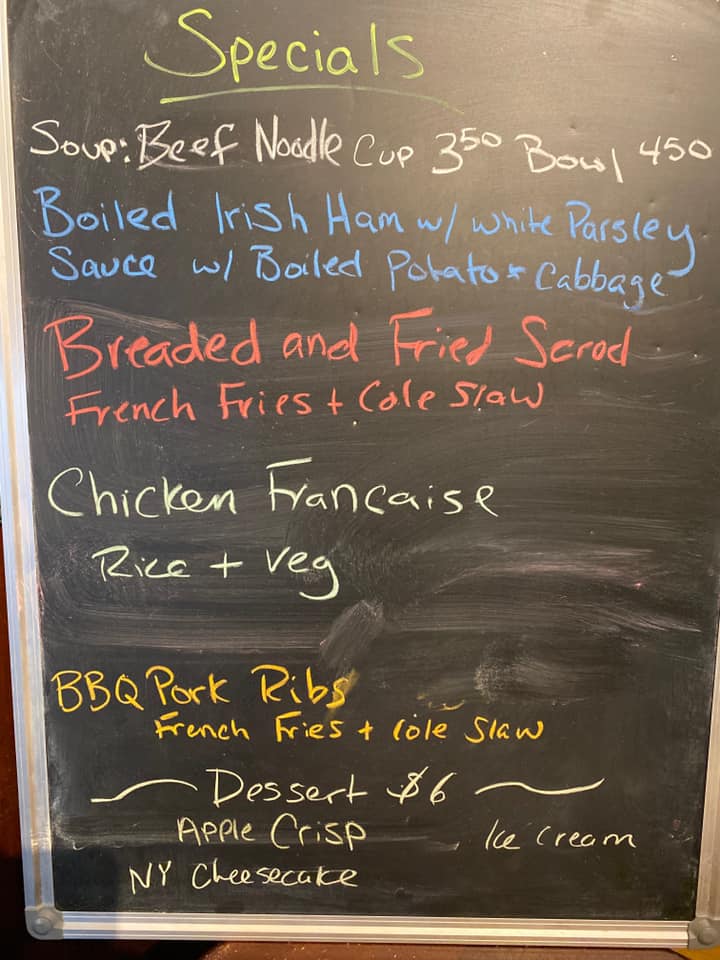 Specials
Soup: Beef Noodle Cup 350 Bowl 450
Boiled Irish Ham w/ white Parsley
Sauce w/ Boiled Potato + Cabbage
Breaded and Fried Scrod
French Fries + Cole Slaw
Chicken Francaise
Rice + Veg
BBQ Pork Ribs
French Fries + Cole Slaw
Dessert $6
Apple Crisp Ice Cream
NY Cheesecake